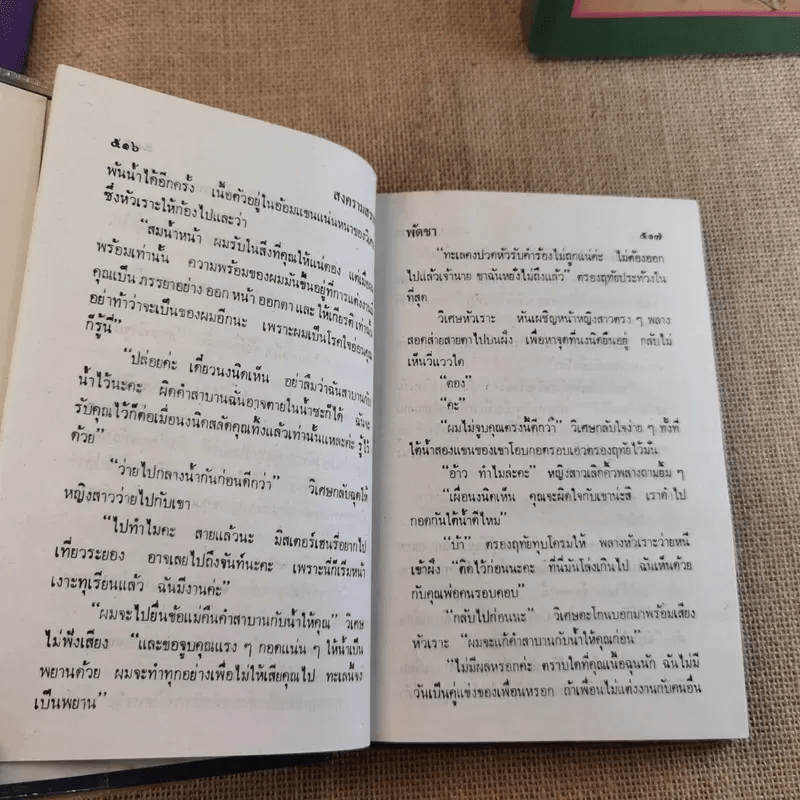 ๕๑๖
สงครามสวา
พันน้ำได้อีกครั้ง เนื้อตัวอยู่ในอ้อมแขนแน่นหนาของวิเศษ
ซึ่งหัวเราะให้ก้องไปและว่า
“สมน้ำหน้า ผมรับในสิ่งที่คุณให้แน่ตอง แต่เมื่อ
พร้อมเท่านั้น ความพร้อมของผมมันขึ้นอยู่ที่การแต่งงาน
คุณเป็น ภรรยาอย่าง ออก หน้า ออกตา และ ให้เกียรติ เท่านั้น
อย่าท้าว่าจะเป็นของผมอีกนะ เพราะผมเป็นโรคใจอ่อนคุณ
ก็รู้นี่”
“ปล่อยค่ะ เดี๋ยวนงนิดเห็น อย่าลืมว่าฉันสาบานกับ
น้ำไว้นะคะ ผิดคำสาบานฉันอาจตายในน้ำซะก็ได้ ฉันจะ
รับคุณไว้ก็ต่อเมื่อนงนิดสลัดคุณทิ้งแล้วเท่านั้นแหละค่ะ รู้ไว้
ด้วย”
“ว่ายไปกลางน้ำกันก่อนดีกว่า” วิเศษกลับฉุดให้
หญิงสาวว่ายไปกับเขา
“ไปทำไมคะ สายแล้วนะ มิสเตอร์เฮนรี่อยากไป
เที่ยวระยอง อาจเลยไปถึงจันท์นะคะ เพราะนี่ก็เริ่มหน้า
เงาะทุเรียนแล้ว ฉันมีงานค่ะ”
“ผมจะไปยื่นข้อแม่คืนคำสาบานกับน้ำให้คุณ” วิเศษ
ไม่ฟังเสียง “และขอจูบคุณแรง ๆ กอดแน่น ๆ ให้น้ำเป็น
พยานด้วย ผมจะทำทุกอย่างเพื่อไม่ให้เสียคุณไป ทะเลนี้จง
เป็นพยาน”
พัดชา
๕๑๗
“ทะเลคงปวดหัวรับคำร้องไม่ถูกแน่ค่ะ ไม่ต้องออก
ไปแล้วเจ้านาย ขาฉันหยั่งไม่ถึงแล้ว” ตรองฤทัยประท้วงใน
ที่สุด
วิเศษหัวเราะ หันเผชิญหน้าหญิงสาวตรง ๆ พลาง
สอดส่ายสายตาไปบนฝั่ง เพื่อหาจุดที่นงนิดยืนอยู่ กลับไม่
เห็นวี่แววใด
“ตอง”
“คะ”
“ผมไม่จูบคุณตรงนี้ดีกว่า” วิเศษกลับใจง่าย ๆ ทั้งที่
ใต้น้ำสองแขนของเขาโอบกอดรอบเอวตรองฤทัยไว้มั่น
“อ้าว ทำไมล่ะคะ” หญิงสาวเลิกคิ้วพลางถามยิ้ม ๆ
“เผื่อนงนิดเห็น คุณจะผิดใจกับเขาน่ะสิ เราดำไป
กอดกันใต้น้ำดีไหม”
“บ้า” ตรองฤทัยทุบโครมให้ พลางหัวเราะว่ายหนี
เข้าฝั่ง “ติดไว้ก่อนนะคะ ที่นี่มันโล่งเกินไป ฉันเห็นด้วย
กับคุณพ่อคนรอบคอบ”
“กลับไปก่อนนะ” วิเศษตะโกนบอกมาพร้อมเสียง
หัวเราะ “ผมจะแก้คำสาบานกับน้ำให้คุณก่อน”
“ไม่มีผลหรอกค่ะ ตราบใดที่คุณเนื้อฉุนนัก ฉันไม่มี
วันเป็นคู่แข่งของเพื่อนหรอก ถ้าเพื่อนไม่แต่งงานกับคนอื่น